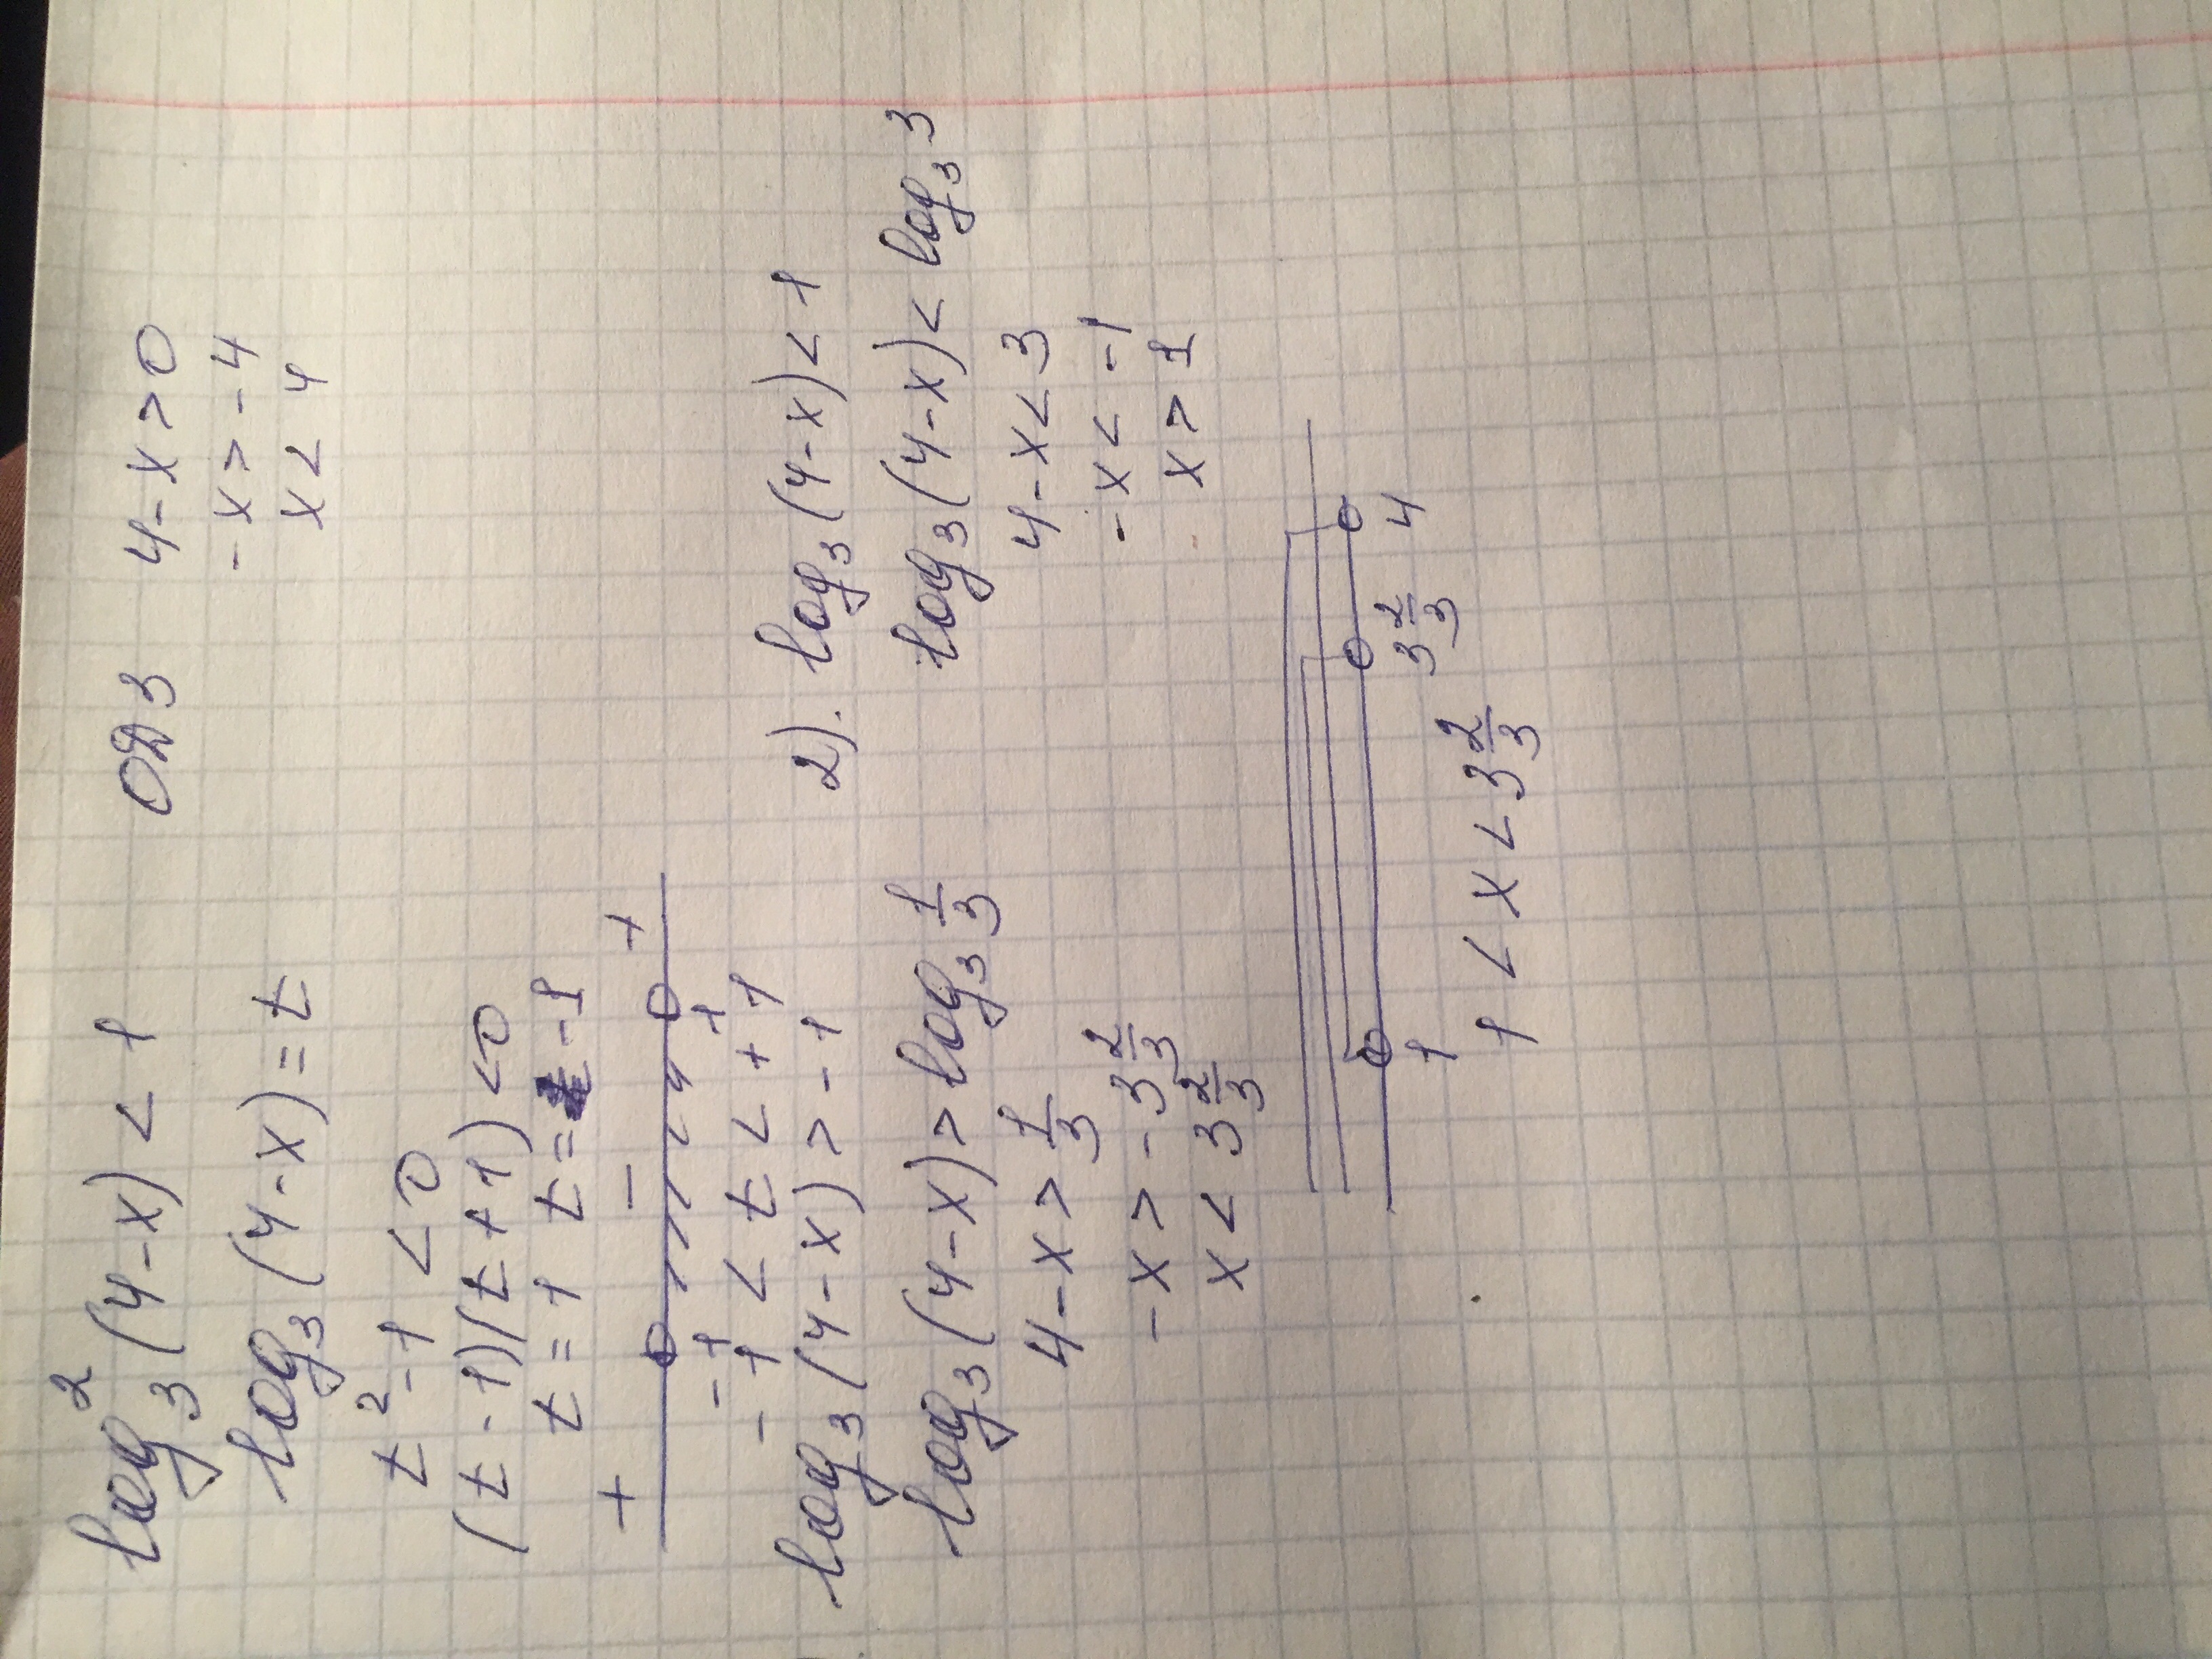 log₃²(4-x) < 1 ОДЗ 4-x>0
-x>-4
x<4
log₃(4-x)=t
t²-1<0
(t-1)(t+1)<0
t=1 t=-1
+ - +
-1 1
-1<t<+1
log₃(4-x)>-1
log₃(4-x)>log₃ 1/3
4-x> 1/3
-x>-3 2/3
x<3 2/3
2). log₃(4-x)<1
log₃(4-x)<log₃3
4-x<3
-x<-1
x>1
1 3 2/3 4
1<x<3 2/3